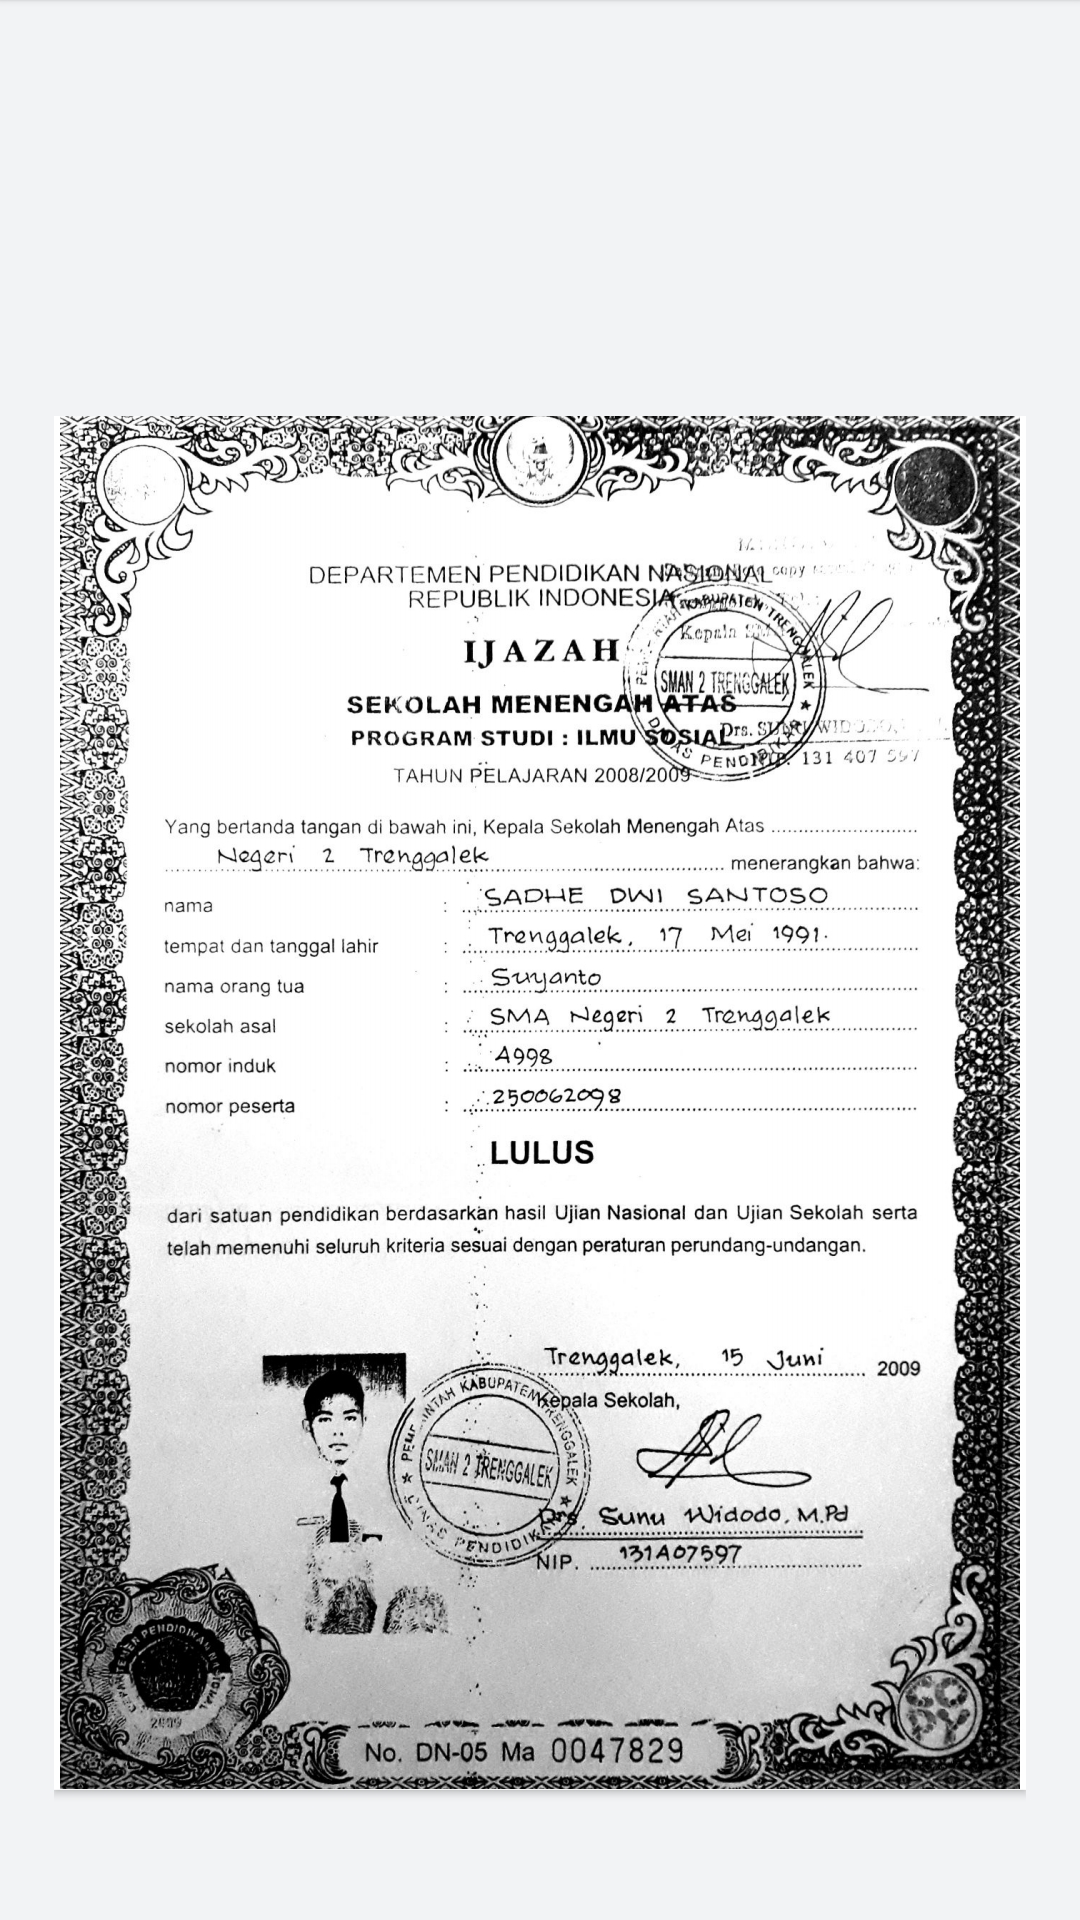 DEPARTEMEN PENDIDIKAN NASIONAL
REPUBLIK INDONESIA
copy
Kepala SMA
IJAZAH
SMAN 2 TRENGGALEK
KABUPATEN TRENGGALEK
DINAS PENDIDIKAN
SEKOLAH MENENGAH ATAS
PROGRAM STUDI : ILMU SOSIAL
Drs. SUNU WIDODO,
NIP. 131 407 597
TAHUN PELAJARAN 2008/2009
Yang bertanda tangan di bawah ini, Kepala Sekolah Menengah Atas
Negeri 2 Trenggalek menerangkan bahwa:
nama : SADHE DWI SANTOSO
tempat dan tanggal lahir : Trenggalek, 17 Mei 1991.
nama orang tua : Suryanto
sekolah asal : SMA Negeri 2 Trenggalek
nomor induk : 4998
nomor peserta : 250062098
LULUS
dari satuan pendidikan berdasarkan hasil Ujian Nasional dan Ujian Sekolah serta
telah memenuhi seluruh kriteria sesuai dengan peraturan perundang-undangan.
Trenggalek, 15 Juni 2009
Kepala Sekolah,
PEMERINTAH KABUPATEN TRENGGALEK
SMAN 2 TRENGGALEK
DINAS PENDIDIKAN
Drs. Sunu Widodo, M.Pd
NIP. 131407597
DEPARTEMEN PENDIDIKAN NASIONAL
2009
No. DN-05 Ma 0047829